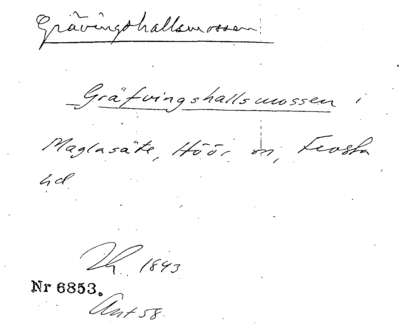 Grävingshallsmossen
Gräfvingshallsmossen i
Maglasäte, Höör sn, Frosta
hd
1843
Nr 6853.
Ant 58.